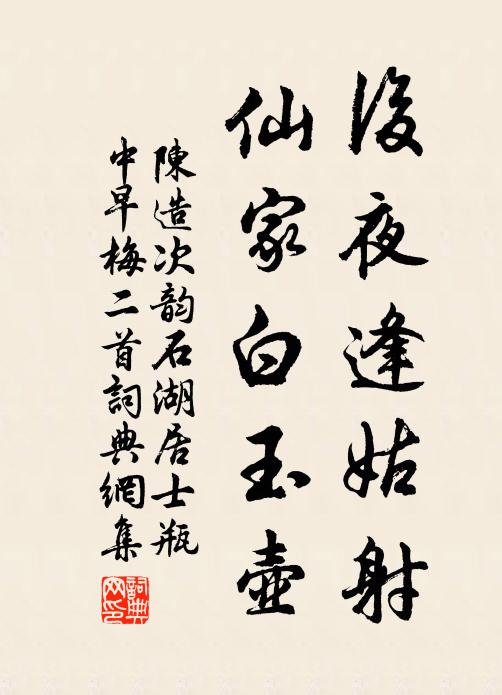 後夜逢姑射
仙家白玉壺
陳造次韵石湖居士瓶
中早梅二首詞典網集
詞典
网印